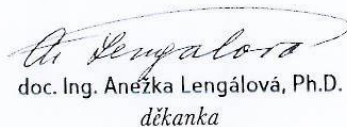 A. Lengálová
doc. Ing. Anežka Lengálová, Ph.D.
děkanka